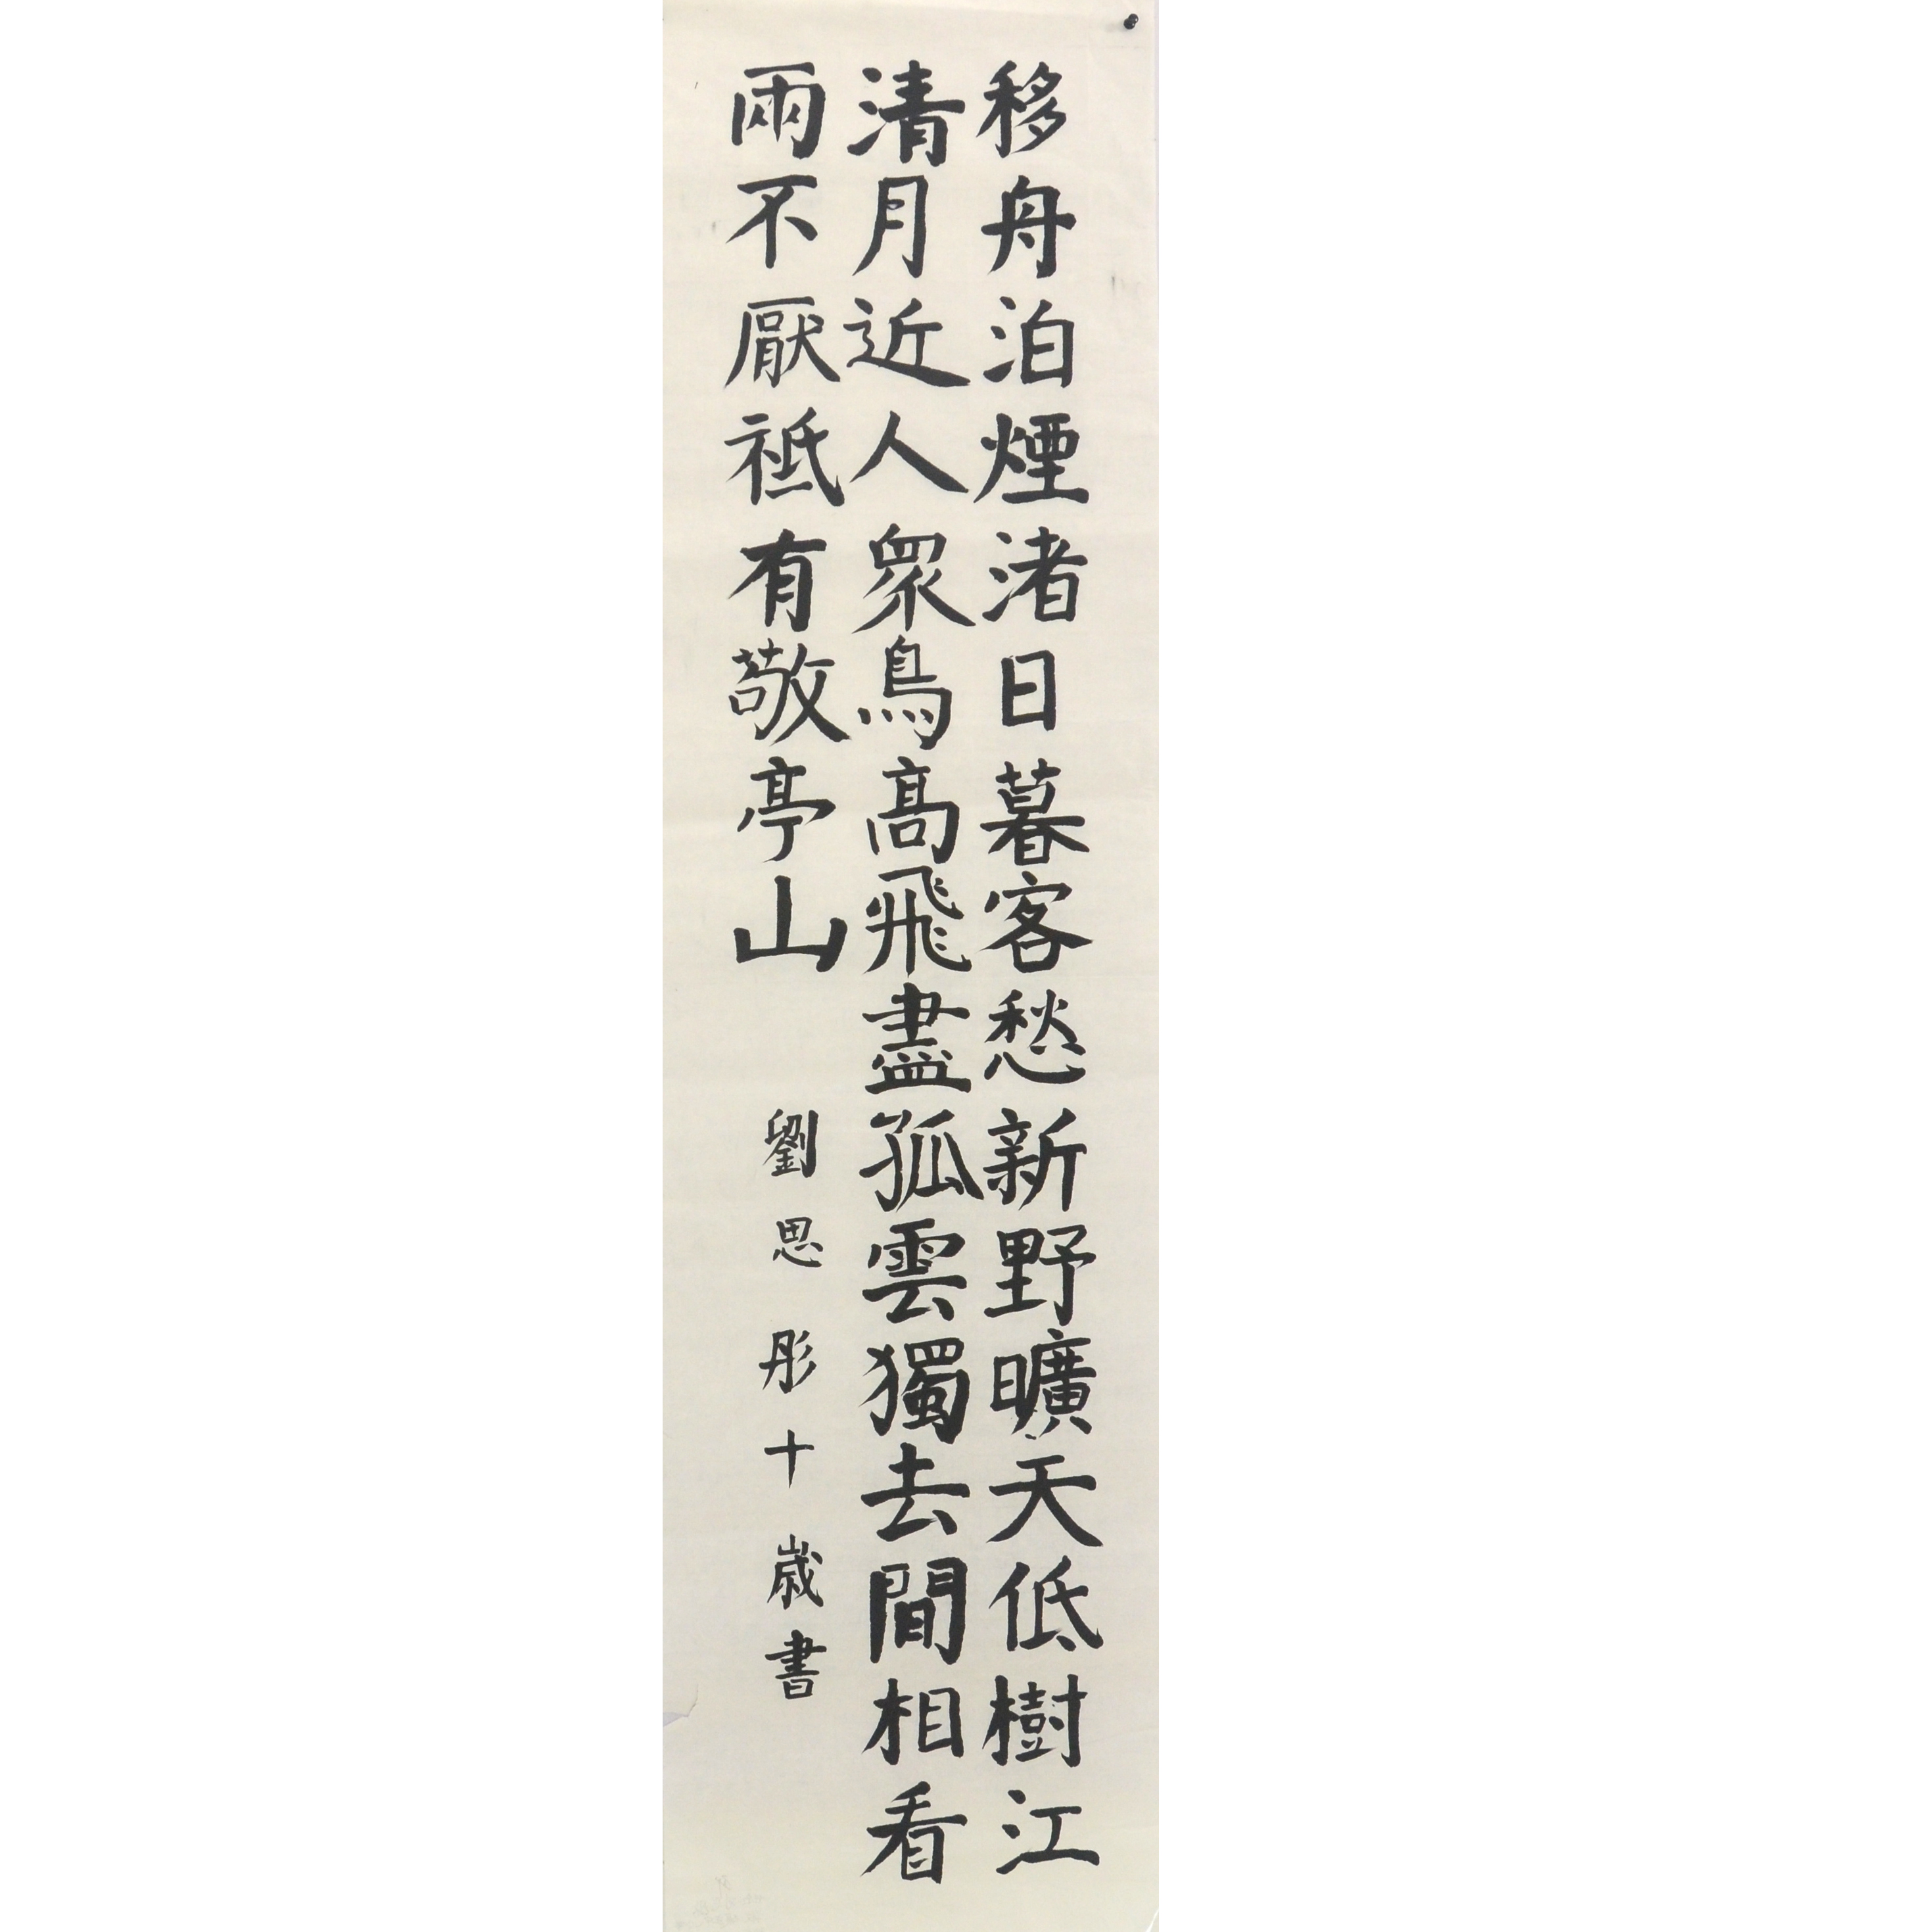 移舟泊煙渚日暮客愁新野曠天低樹江
清月近人衆鳥高飛盡孤雲獨去間相看
兩不厭祗有敬亭山
劉思彤十歲書